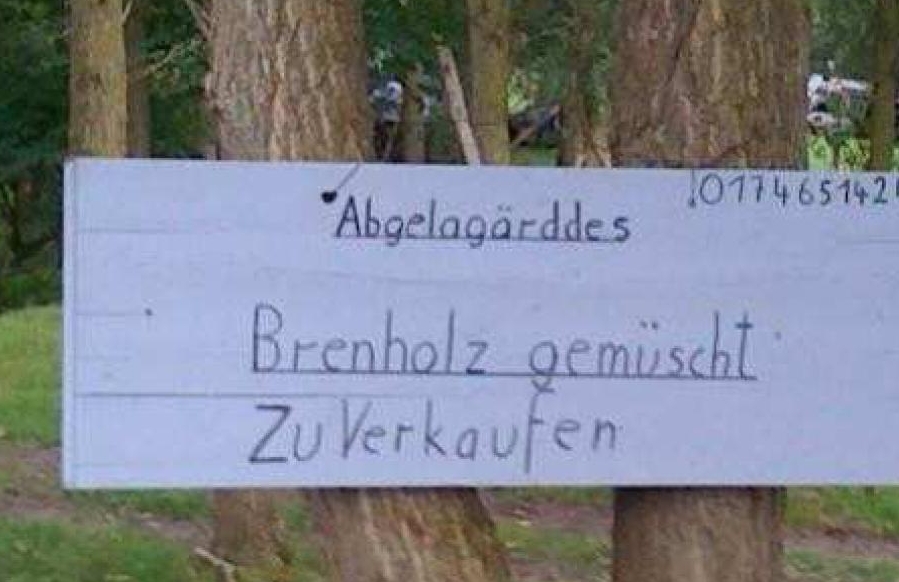 0174651424
Abgelagärddes
Brenholz gemüscht
Zu Verkaufen